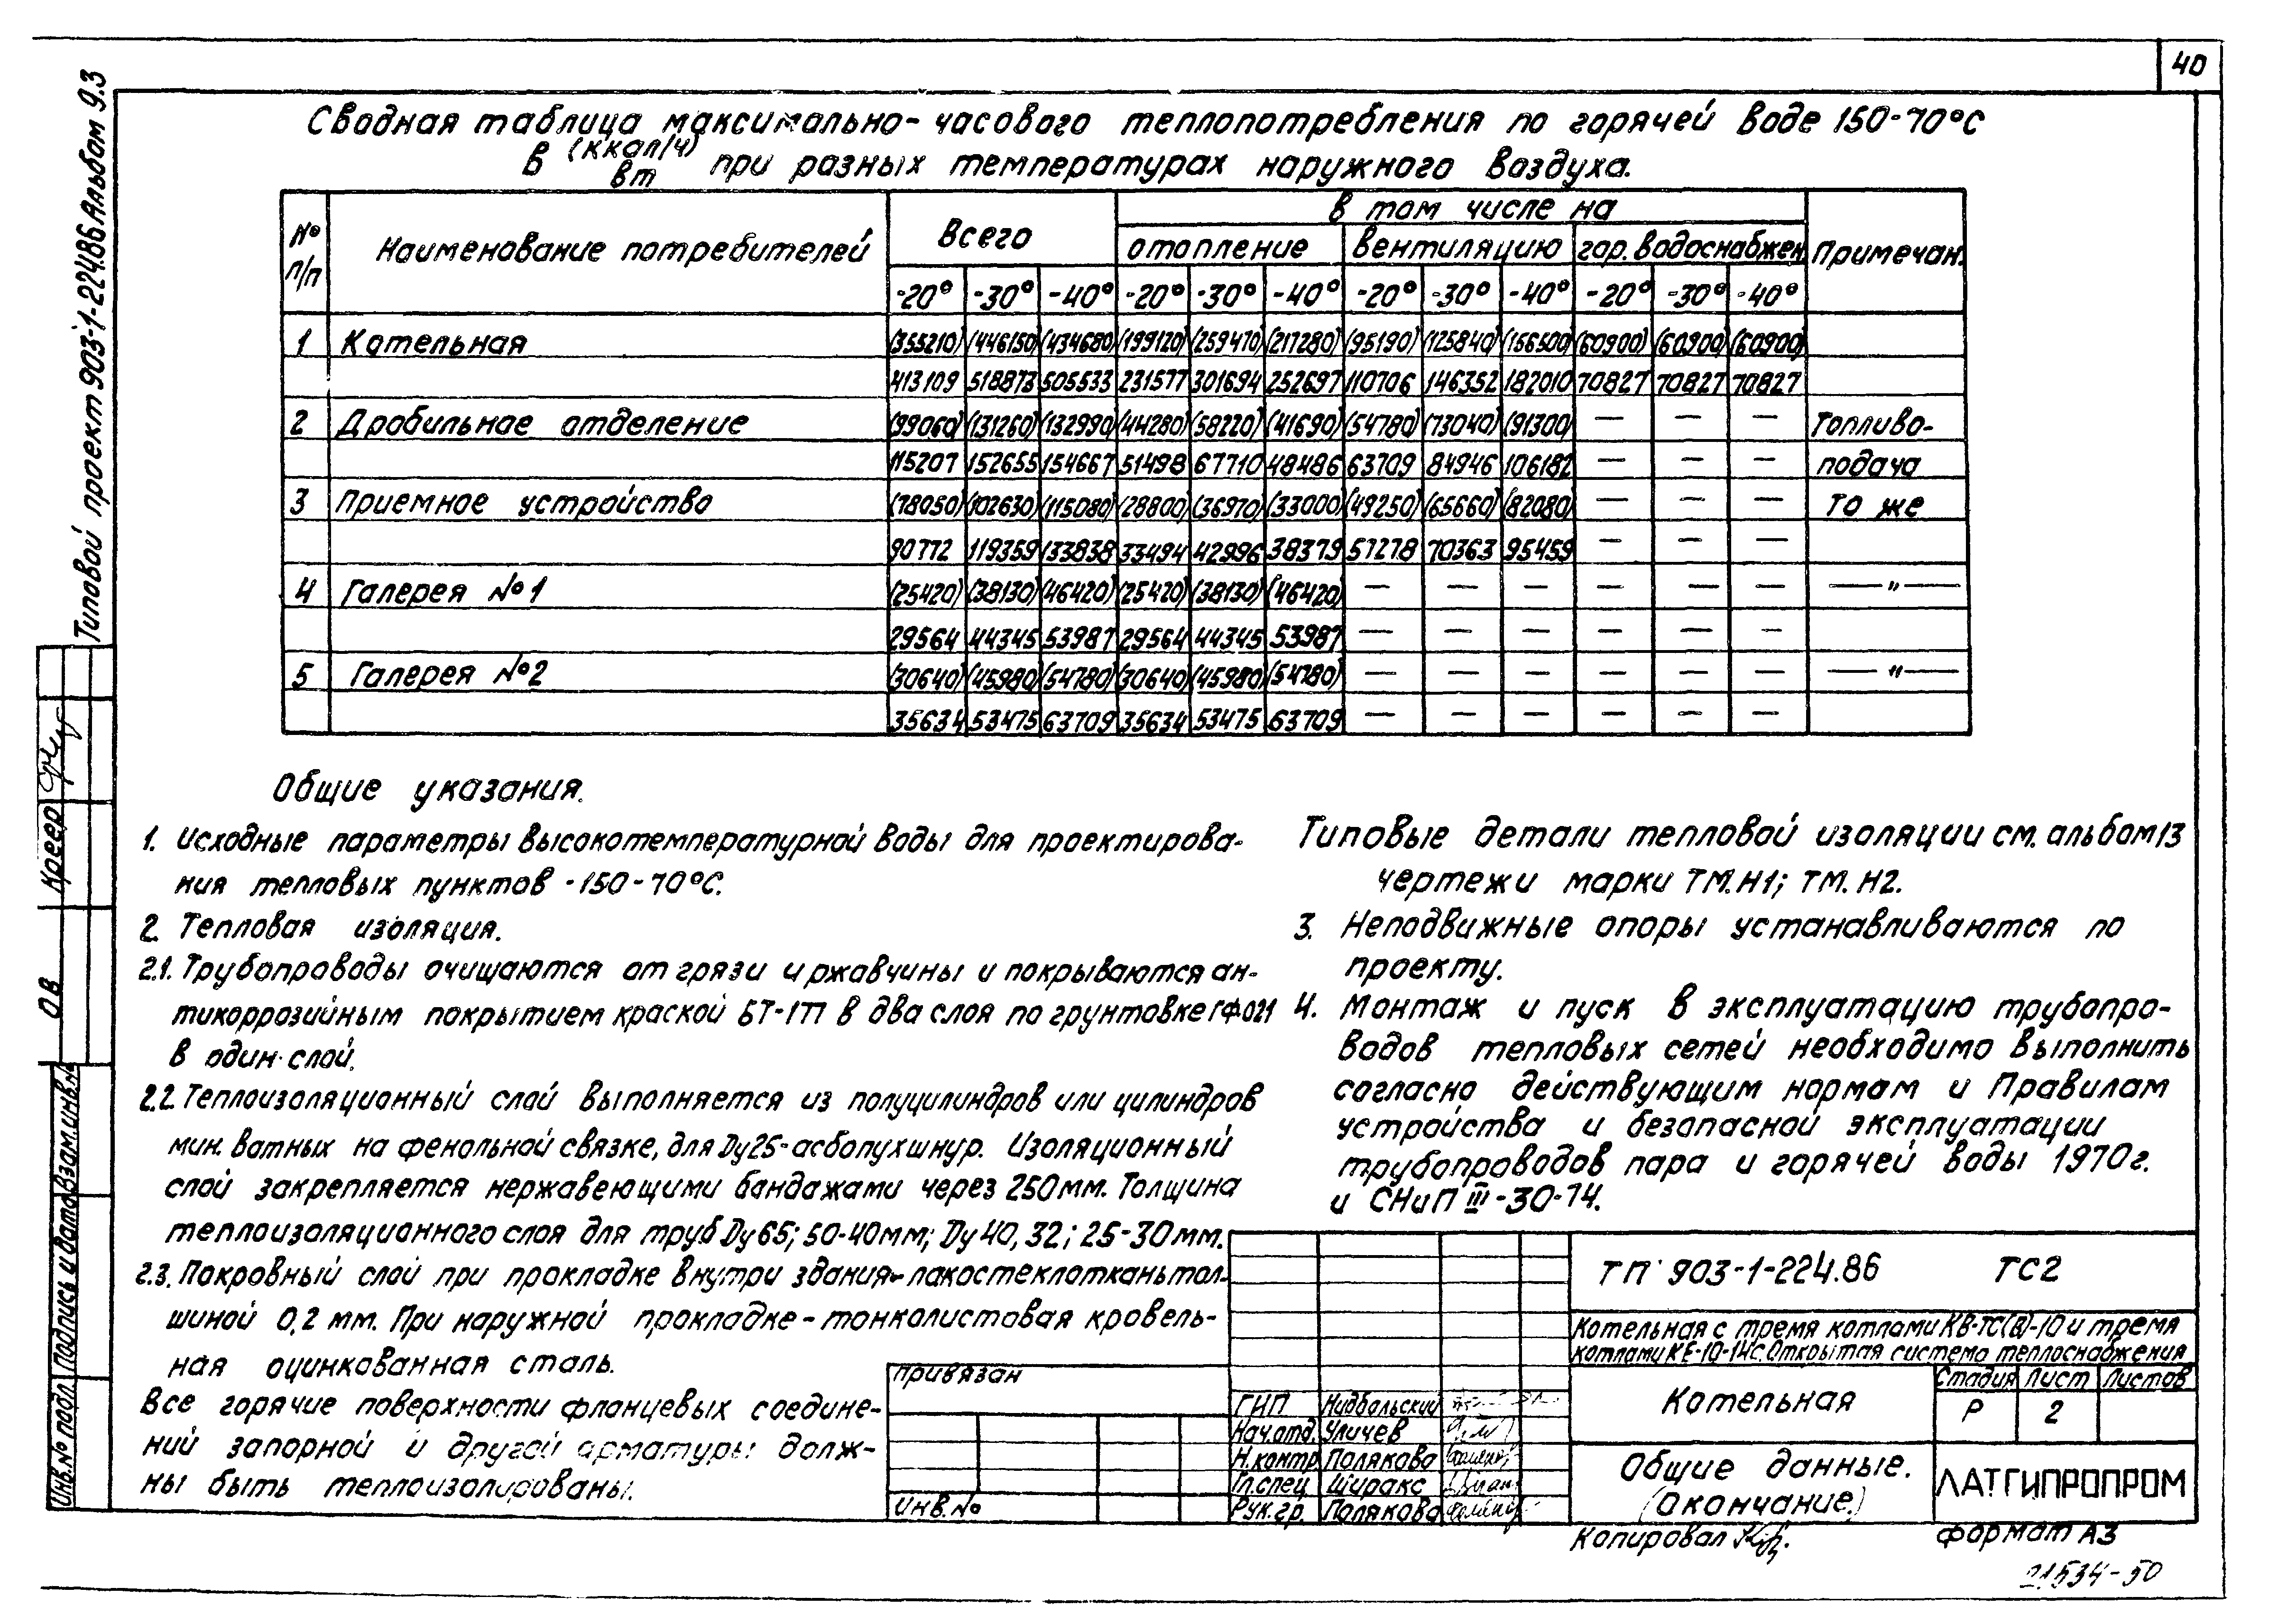 40
Типовой проект 903-1-224.86 Альбом 9.3
Сводная таблица максимально-часового теплопотребления по горячей воде 150-70°С
в (ккал/ч) вт при разных температурах наружного воздуха.
№ п/п Наименование потребителей Всего в том числе на Примечан.
отопление вентиляцию гор. водоснабжен
-20° -30° -40° -20° -30° -40° -20° -30° -40° -20° -30° -40°
1 Котельная (355210) (446150) (434680) (199120) (259470) (217280) (95190) (125840) (156500) (60900) (60900) (60900)
413109 518873 505533 231577 301694 252697 110706 146352 182010 70827 70827 70827
2 Дробильное отделение (99060) (131260) (132990) (44280) (58220) (41690) (54780) (73040) (91300) — — — Топливо-
115207 152655 154667 51498 67710 48486 63709 84946 106182 — — — подача
3 Приемное устройство (78050) (102630) (115080) (28800) (36970) (33000) (49250) (65660) (82080) — — — то же
90772 119359 133838 33494 42996 38379 57278 70363 95459 — — —
4 Галерея №1 (25420) (38130) (46420) (25420) (38130) (46420) — — — — — — —"—
29564 44345 53987 29564 44345 53987 — — — — — —
5 Галерея №2 (30640) (45980) (54780) (30640) (45980) (54780) — — — — — — —"—
35634 53475 63709 35634 53475 63709 — — — — — —
Общие указания.
1. Исходные параметры высокотемпературной воды для проектирова-
ния тепловых пунктов -150-70°С.
2. Тепловая изоляция.
2.1. Трубопроводы очищаются от грязи и ржавчины и покрываются ан-
тикоррозийным покрытием краской БТ-177 в два слоя по грунтовке ГФ.021
в один слой.
2.2. Теплоизоляционный слой выполняется из полуцилиндров или цилиндров
мин. ватных на фенольной связке, для Ду25-асбопухшнур. Изоляционный
слой закрепляется нержавеющими бандажами через 250мм. Толщина
теплоизоляционного слоя для труб Ду65; 50-40мм; Ду 40, 32; 25-30мм.
2.3. Покровный слой при прокладке внутри здания-лакостеклотканьтол-
шиной 0,2 мм. При наружной прокладке-тонколистовая кровель-
ная оцинкованная сталь.
Все горячие поверхности фланцевых соедине-
ний запорной и другой арматуры долж-
ны быть теплоизолированы.
Типовые детали тепловой изоляции см. альбом 13
чертежи марки ТМ.Н1; ТМ.Н2.
3. Неподвижные опоры устанавливаются по
проекту.
4. Монтаж и пуск в эксплуатацию трубопро-
водов тепловых сетей необходимо выполнить
согласно действующим нормам и Правилам
устройства и безопасной эксплуатации
трубопроводов пара и горячей воды 1970г.
и СНиП III-30-74.
ТП 903-1-224.86 ТС2
Котельная с тремя котлами КВ-ТС(В)-10 и тремя
котлами КЕ-10-14с. Открытая система теплоснабжения
Привязан
Инв.№
ГИП Нидбальский
Нач.отд. Уличев
Н.контр. Полякова
Гл.спец Ширакс
Рук.гр. Полякова
Котельная
Стадия Лист Листов
Р 2
Общие данные.
(окончание.)
ЛАТГИПРОПРОМ
Копировал
формат А3
21534-50
Креер
ОВ
Взам.инв.№
Подпись и дата
Инв.№ подл.